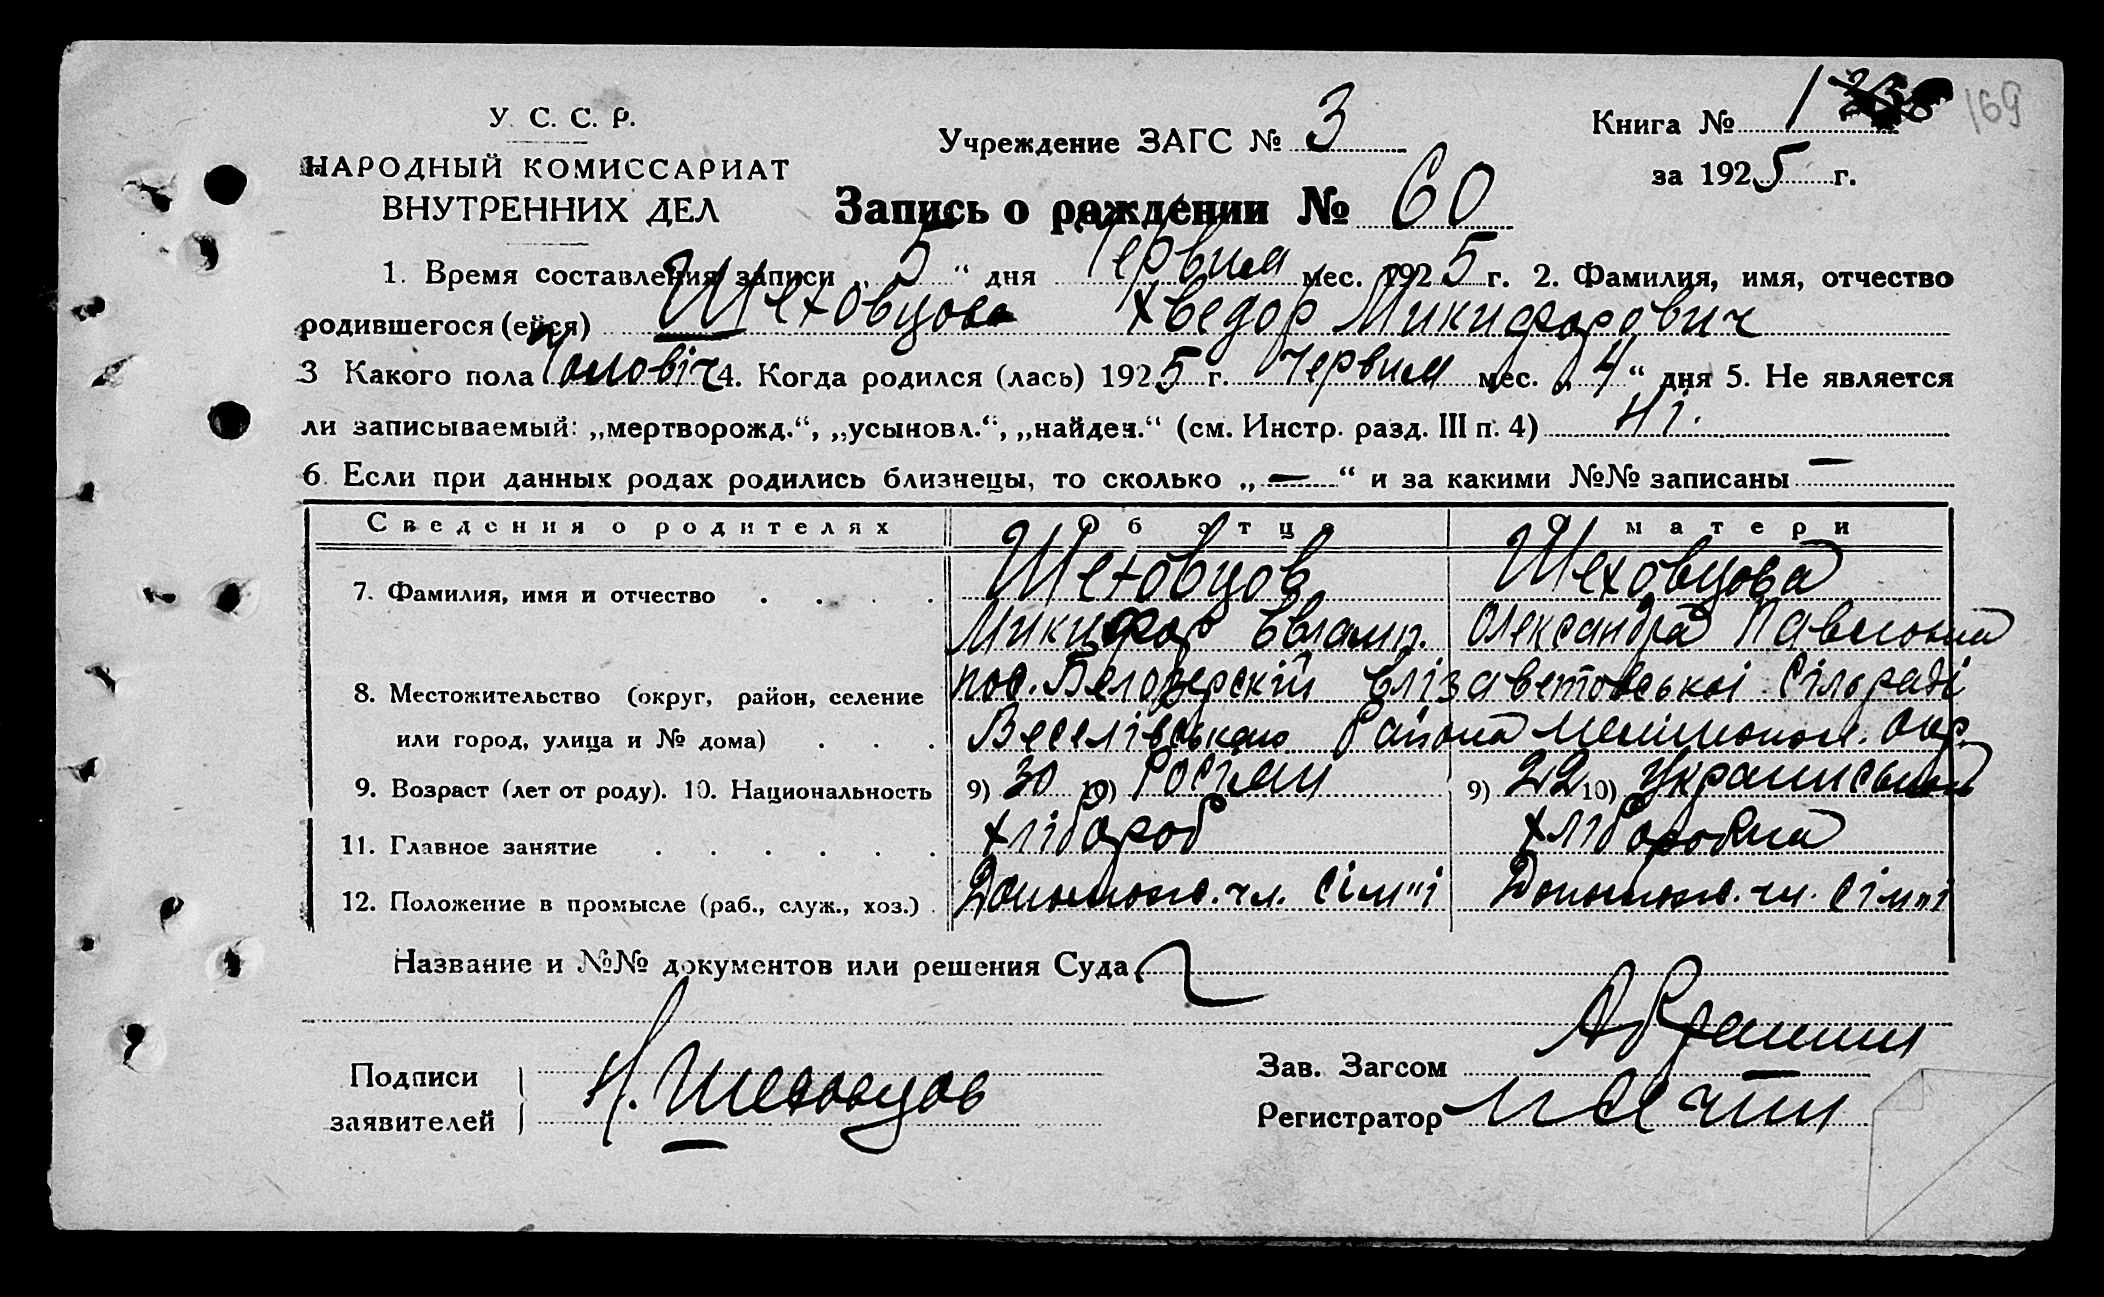 У. С. С. Р.
НАРОДНЫЙ КОМИССАРИАТ
ВНУТРЕННИХ ДЕЛ
Учреждение ЗАГС № 3
Книга № 1
169
за 1925 г.
Запись о рождении № 60
1. Время составления записи „ 5 “ дня Червня мес. 1925 г. 2. Фамилия, имя, отчество
родившегося (ейся) Шеховцова Хведор Микифорович
3 Какого пола Чоловіч 4. Когда родился (лась) 1925 г. Червня мес. „ 4 “ дня 5. Не является
ли записываемый: „мертворожд.“, „усыновл.“, „найден.“ (см. Инстр. разд. III п. 4) Ні.
6. Если при данных родах родились близнецы, то сколько „ — “ и за какими №№ записаны —
Сведения о родителях Об отце О матери
7. Фамилия, имя и отчество Шеховцов Шеховцова
Микифор Евламп. Олександра Павловна
8. Местожительство (округ, район, селение пос. Белозерский Елізаветовської Сільради
или город, улица и № дома) Веселівського Района Мелітопол. Окр.
9. Возраст (лет от роду). 10. Национальность 9) 30 10) 9) 22 10)
11. Главное занятие Хлібороб Хліборобка
12. Положение в промысле (раб., служ., хоз.) Допомож. чл. сім"ї Допомож. чл. сім"ї
Название и №№ документов или решения Суда
Подписи заявителей Н. Шеховцов
Зав. Загсом
Регистратор